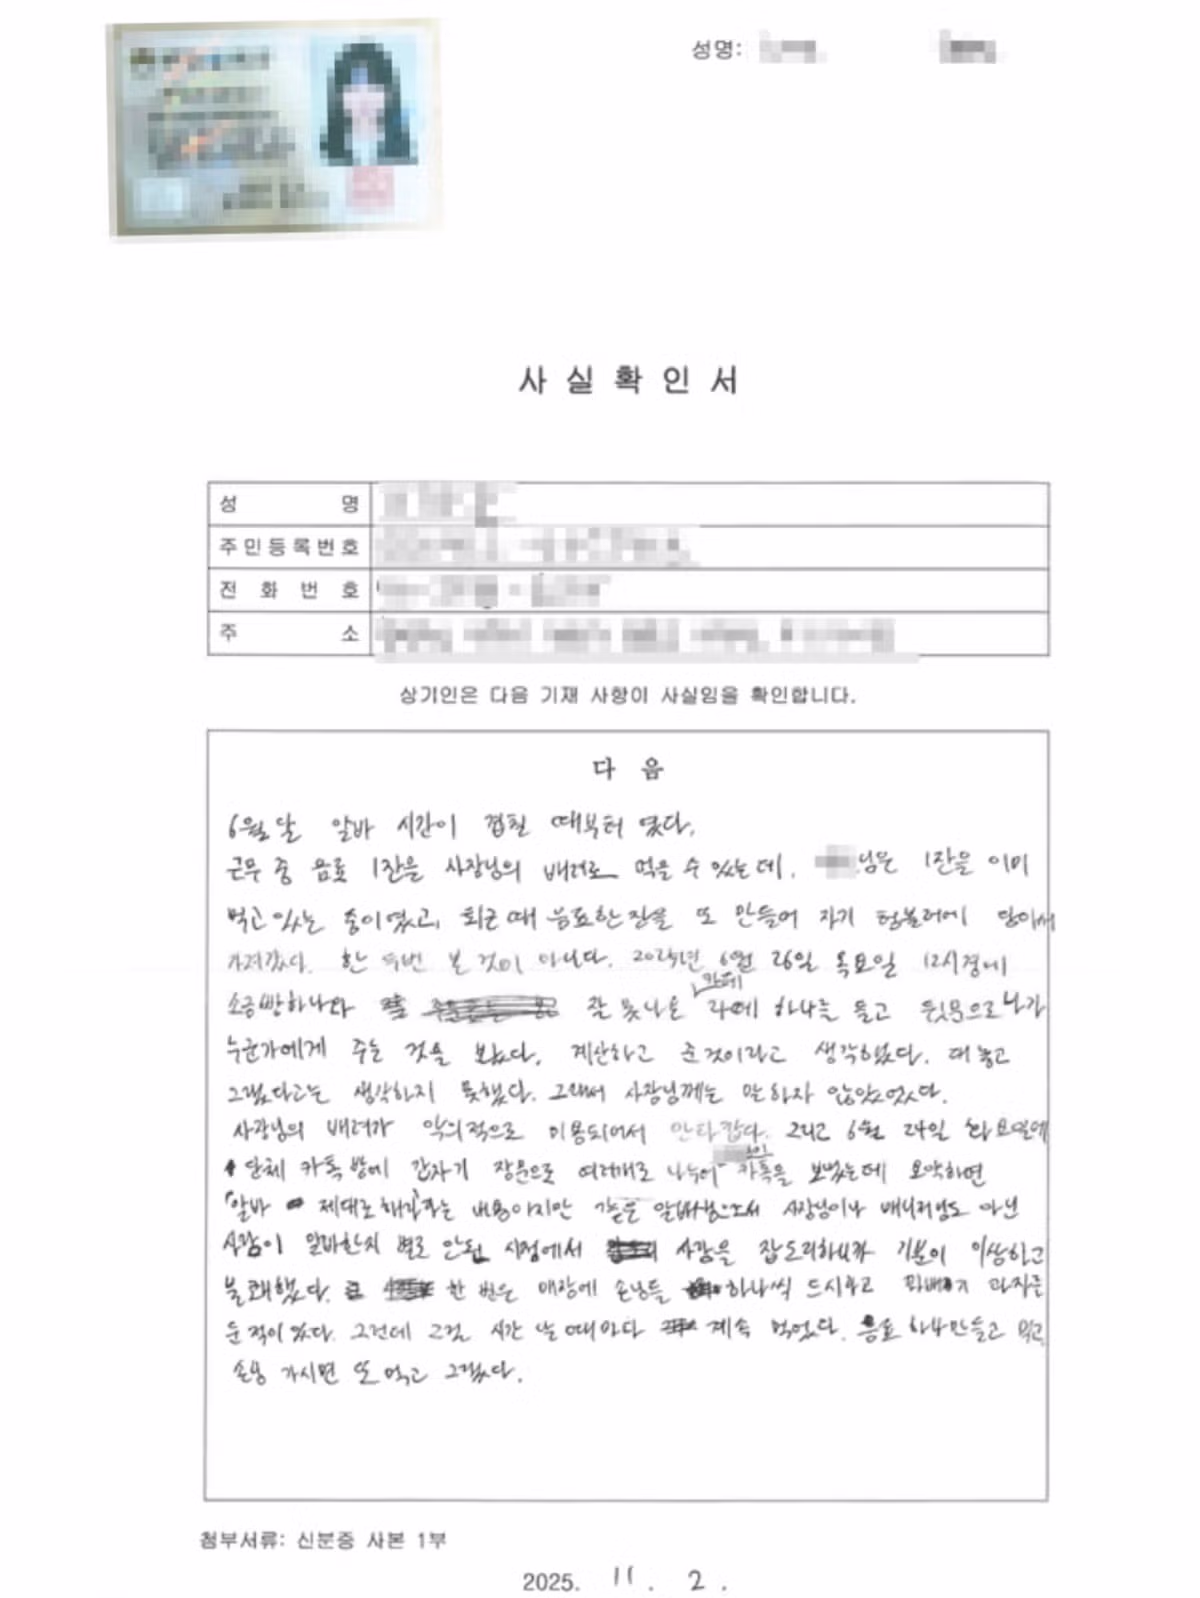 성명:
사 실 확 인 서
성 명
주민등록번호
전 화 번 호
주 소
상기인은 다음 기재 사항이 사실임을 확인합니다.
다 음
6월달 알바 시간이 겹칠 때부터 였다.
근무 중 음료 1잔을 사장님의 배려로 먹을 수 있는데, 님은 1잔을 이미
먹고 있는 중이였고, 퇴근 때 음료한잔을 또 만들어 자기 텀블러에 담아서
가져갔다. 한 두번 본 것이 아니다. 2025년 6월 26일 목요일 12시경에
소금빵하나와 잘 못나온 카페 라떼 하나를 들고 뒷문으로 나가
누군가에게 주는 것을 보았다. 계산하고 준것이라고 생각하였다. 대놓고
그랬다고는 생각하지 못했다. 그래서 사장님께는 말하지 않았었다.
사장님의 배려가 악의적으로 이용되어서 안타깝다. 그리고 6월 24일 화요일에
단체 카톡방에 갑자기 장문으로 여러개로 나누어 카톡을 보냈는데 요약하면
"알바 제대로해라"라는 내용이지만 같은 알바생으로서 사장님이나 매니저님도 아닌
사람이 알바한지 별로 안된 시점에서 사람을 잡도리하니까 기분이 이상하고
불쾌했다. 한 번은 매장에 손님들 하나씩 드시라고 꽈배기 과자를
둔적이 있다. 그런데 그걸 시간 날때마다 계속 먹었다. 음료 하나만들고 먹고,
손님 가시면 또 먹고 그랬다.
첨부서류: 신분증 사본 1부
2025. 11. 2.